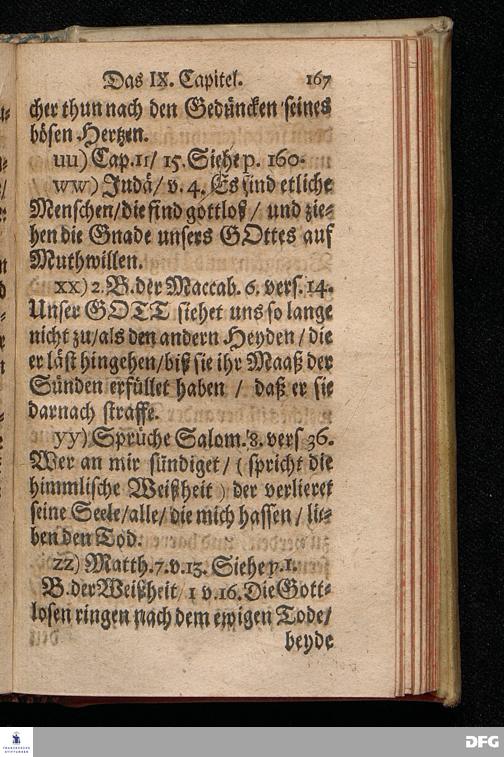 Das IX. Capitel. 167
cher thun nach den Gedüncken seines
bösen Hertzen.
uu) Cap. 11/ 15. Siehe p. 160.
ww) Judä/ v. 4. Es sind etliche
Menschen/die sind gottloß/ und zie-
hen die Gnade unsers GOttes auf
Muthwillen.
xx) 2. B. der Maccab. 6. vers. 14.
Unser GOTT siehet uns so lange
nicht zu/als den andern Heyden/ die
er läst hingehen/biß sie ihr Maaß der
Sünden erfüllet haben / daß er sie
darnach straffe.
yy) Sprüche Salom. 8. vers 36.
Wer an mir sündiget/ (spricht die
himmlische Weißheit) der verlieret
seine Seele/alle/ die mich hassen / lie-
ben den Tod.
zz) Matth. 7. v. 13. Siehe p. 1.
B. der Weißheit/ 1 v. 16. Die Gott-
losen ringen nach dem ewigen Tode/
beyde
FRANCKESCHE
STIFTUNGEN
DFG